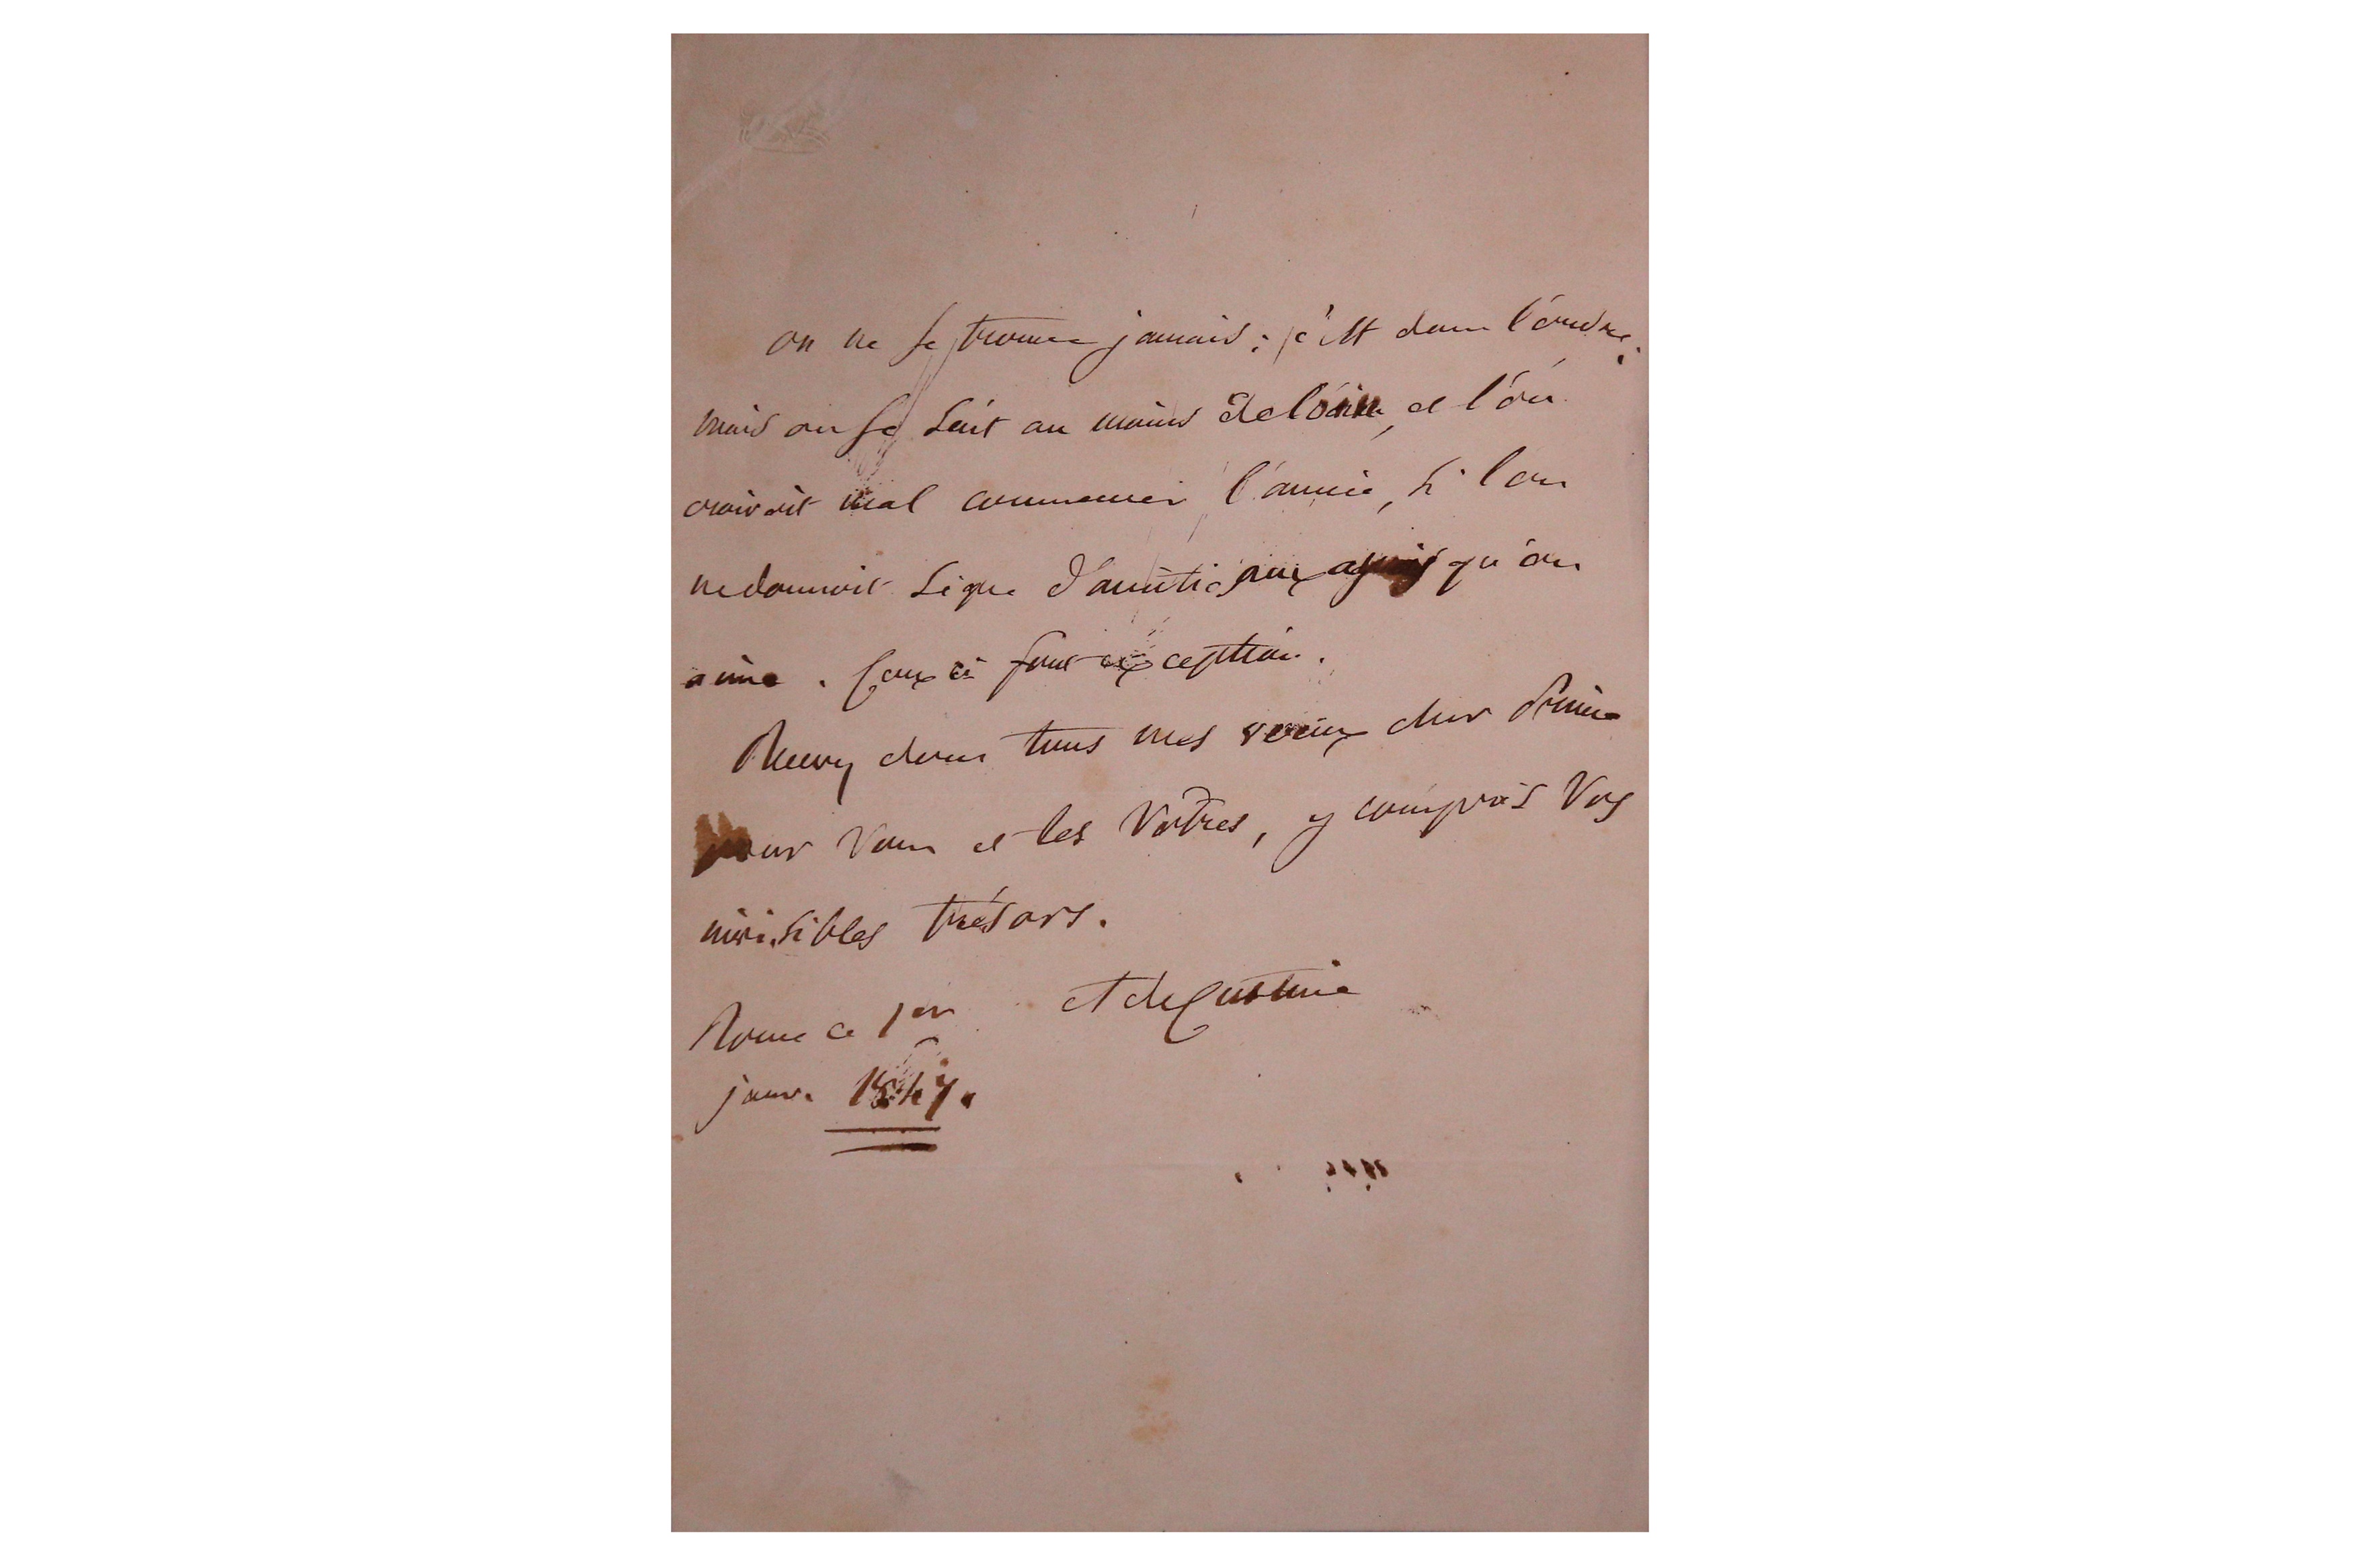 on ne se trouve jamais ; c'est dans l'ordre,
mais on se sait au moins de loin, et l'on
croiroit mal commencer l'année, si l'on
ne donnoit signe d'amitié aux amis qu'on
aime. Ceux ci font exception.
Recevez donc tous mes vœux cher Prince
pour vous et les Vôtres, y compris Vos
invisibles trésors.
A de Custine
Rome ce 1er
janv. 1847.